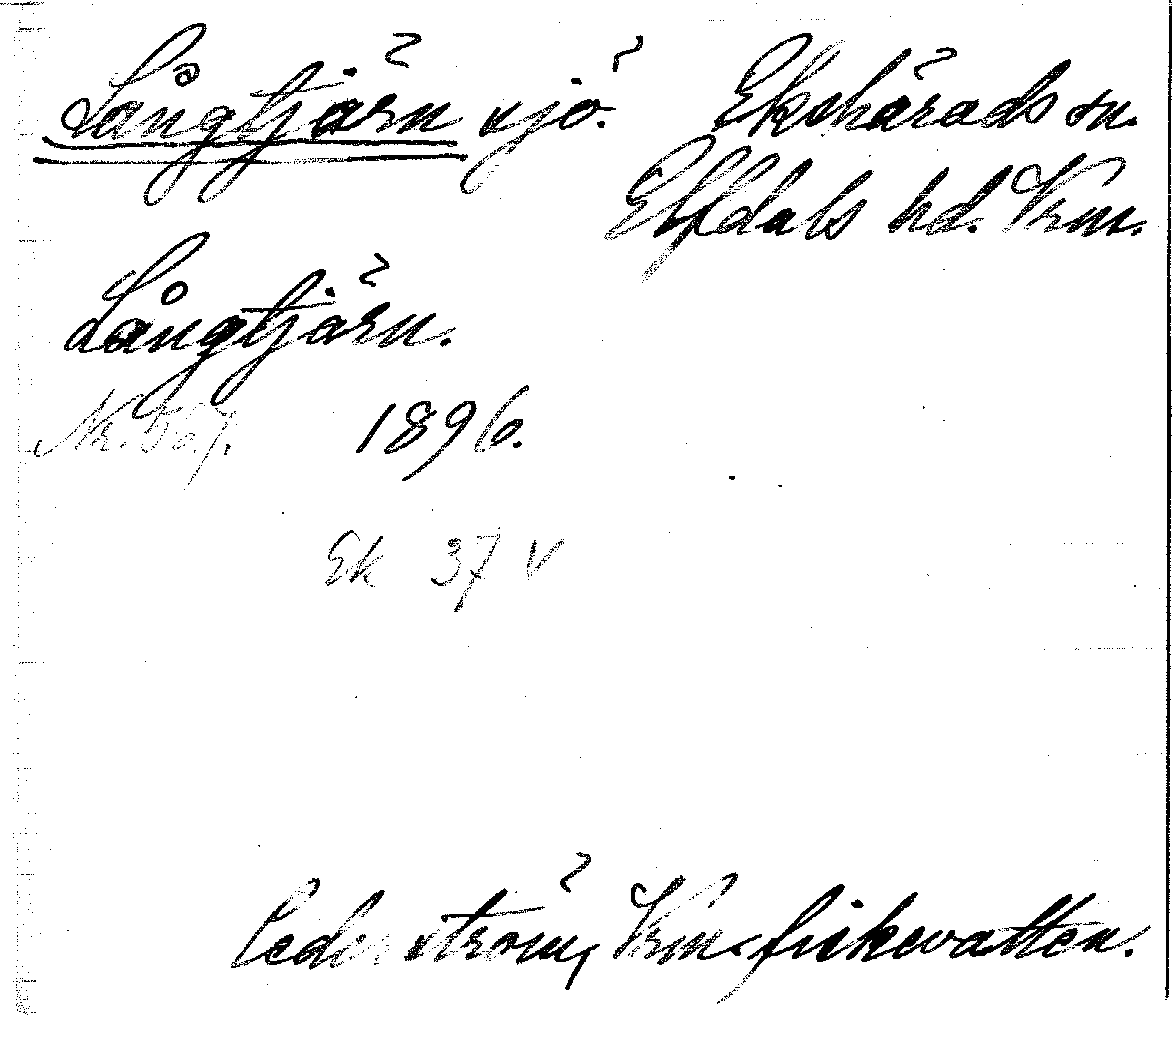 Långtjärn sjö. Ekshärads sn.
Elfdals hd. Vrm.
Långtjärn.
Nr. 567. 1896.
Ek 37 V
Cederström, Vrm-s fiskevatten.